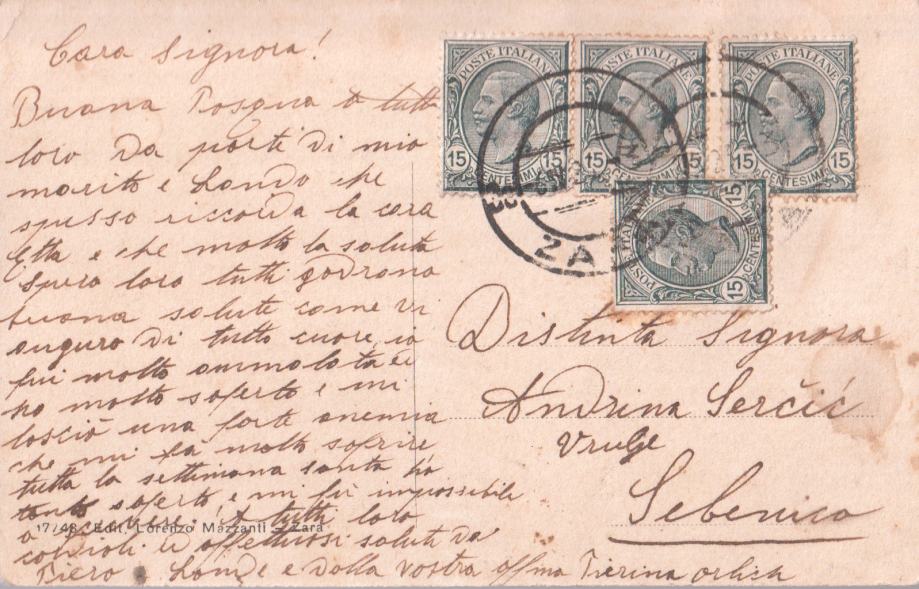 Cara Signora!
Buona Pasqua a tutti
loro da parti di mio
marito e Londo che
spesso riccorda la cara
Etta e che molto la saluta
spero loro tutti godrono
buona salute come vi
auguro di tutto cuore, io
fui molto ammalata
ho molto soferto e mi
losciò una forte anemia
che mi fà molto sofrire
tutta la settimana santa ho
tanto soferto e mi fù impossibile
a tutti loro
cordioli ed affettuosi saluti da
Piero Londo e dalla vostra affma Pierina orlich
17/48 Edit. Lorenzo Mazzanti - Zara
POSTE ITALIANE
15 CENTESIMI 15
POSTE ITALIANE
15 CENTESIMI 15
POSTE ITALIANE
15 CENTESIMI 15
POSTE ITALIANE
15 CENTESIMI 15
ZA
Distinta Signora
Andrina Serčić
Vrulje
Sebenico